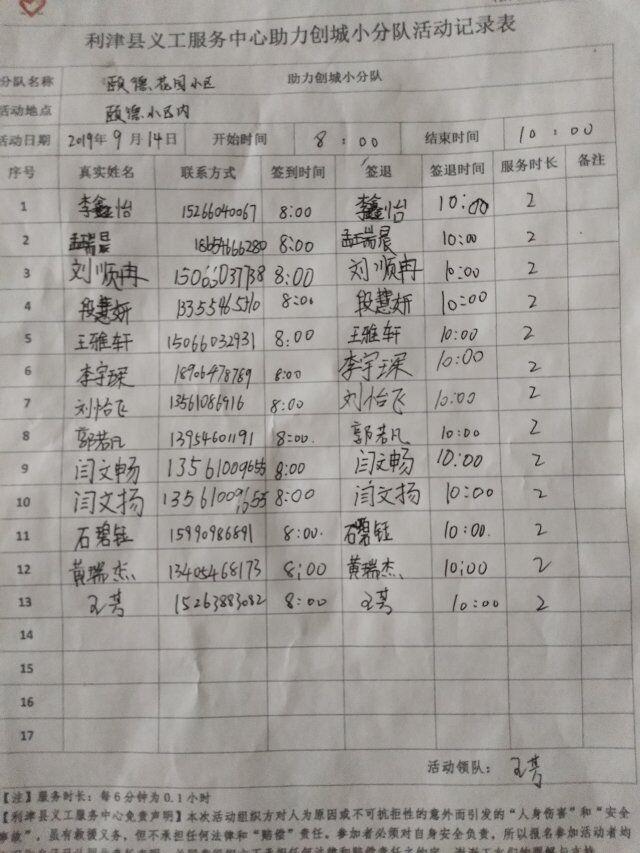 利津县义工服务中心助力创城小分队活动记录表
分队名称 颐德花园小区 助力创城小分队
活动地点 颐德小区内
活动日期 2019年9月14日 开始时间 8:00 结束时间 10:00
序号 真实姓名 联系方式 签到时间 签退 签退时间 服务时长 备注
1 李鑫怡 15266040067 8:00 李鑫怡 10:00 2
2 孟瑞晨 18654666280 8:00 孟瑞晨 10:00 2
3 刘顺冉 8:00 刘顺冉 10:00 2
4 段慧妍 13355465310 8:00 段慧妍 10:00 2
5 王雅轩 15066032931 8:00 王雅轩 10:00 2
6 李宇琛 18906478789 8:00 李宇琛 10:00 2
7 刘怡飞 13561086916 8:00 刘怡飞 10:00 2
8 郭若凡 13954601191 8:00. 郭若凡 10:00 2
9 闫文畅 13561009655 8:00 闫文畅 10:00 2
10 闫文扬 13561009655 8:00 闫文扬 10:00 2
11 石碧钰 15990986891 8:00. 石碧钰 10:00. 2
12 黄瑞杰 13405468173 8:00 黄瑞杰 10:00 2
13 王芳 15263883082 8:00 王芳 10:00 2
14
15
16
17
活动领队: 王芳
【注】服务时长:每6分钟为0.1小时
【利津县义工服务中心免责声明】本次活动组织方对人为原因或不可抗拒性的意外而引发的“人身伤害”和“安全
事故”,虽有救援义务,但不承担任何法律和“赔偿”责任。参加者必须对自身安全负责,所以报名参加活动者均